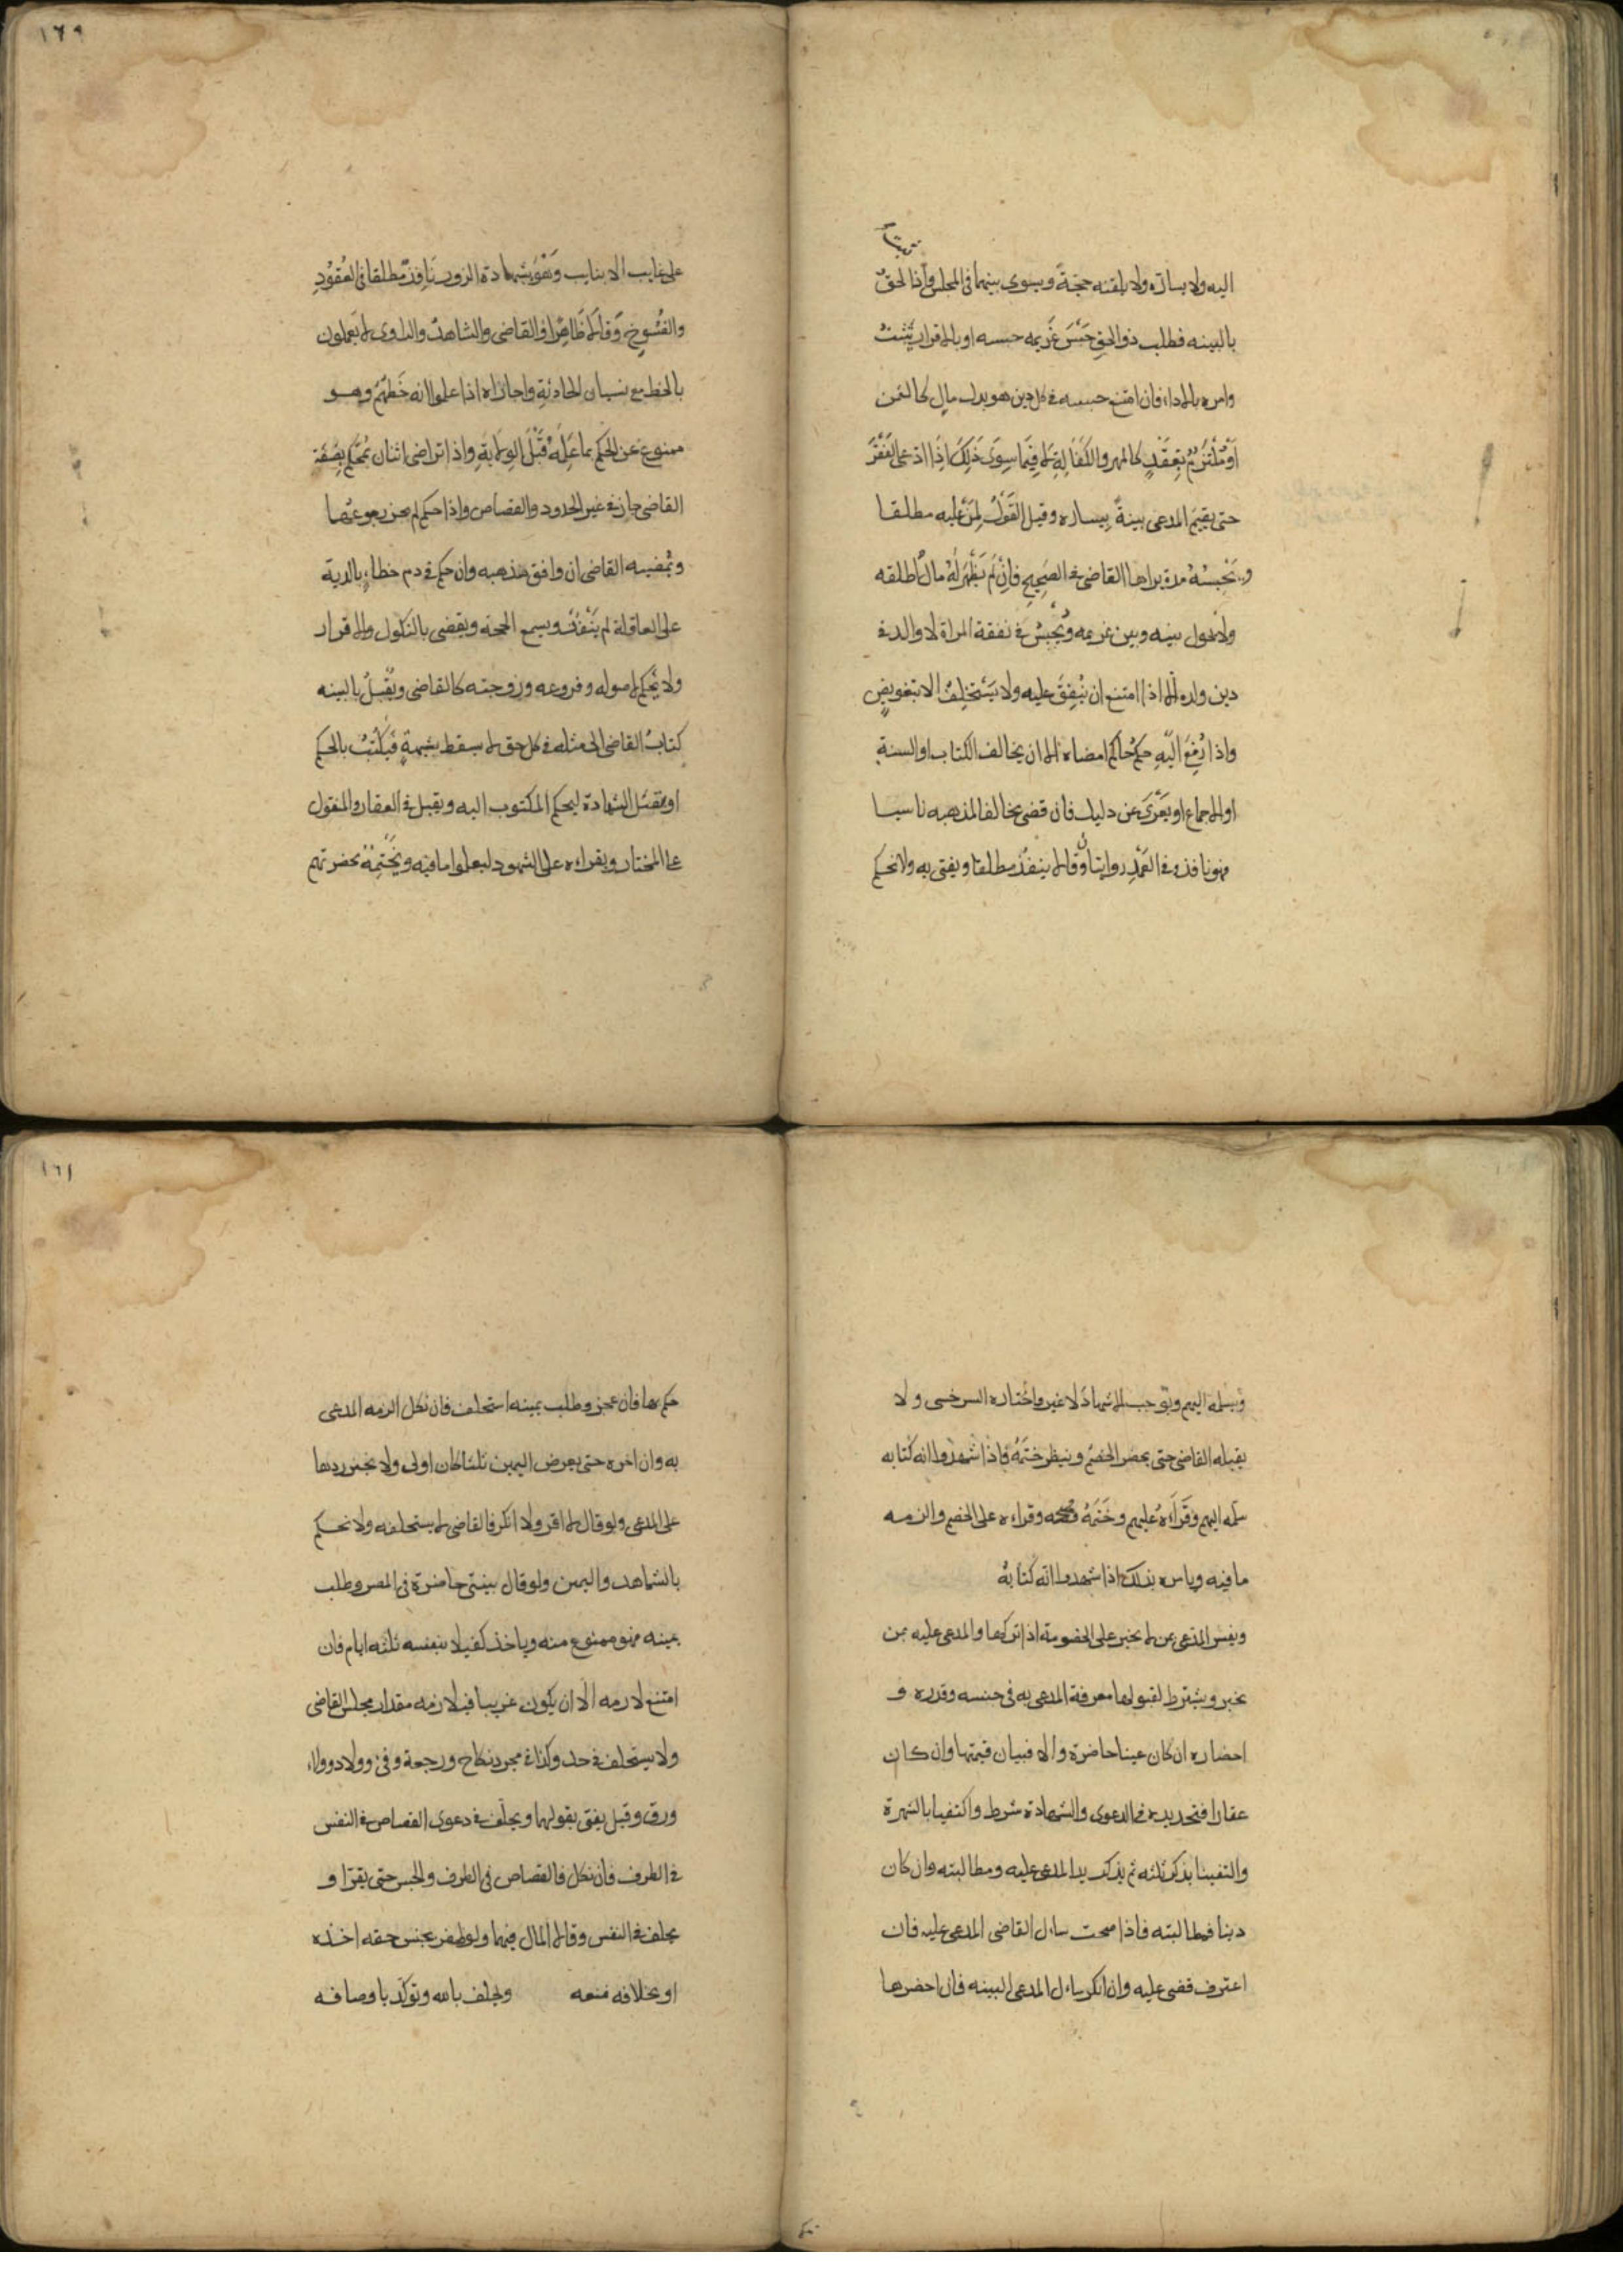 يثبت
اليه ولا يساره ولا يلقنه حجّةً ويسوى بينهما فى المجلس واذا الحقّ
بالبينه فطلب ذو الحقِ حَبْسَ غَريمه حبسه او بالاقرار يَثبتُ
وامره بالاداء فان امتنع حبسه فى كل دين هو بدل مالٍ كالثمن
اَوْ مُلْتَزمٌ بِعَقدٍ كالمهر والكفالةِ لا فِيمَا سِوَى ذلِكَ اِذَا ادّعى الفَقْرَ
حتى يقيمَ المدعى بينةً بِيساره وقيل القَوْلُ لِمَنْ عليه مطلقا
ويَحْبِسُهُ مدة يراها القاضى فى الصَحِيحِ فَاِنْ لَمْ يَظْهَرْ لَهُ مالٌ اطلقه
ولا يحول بينه وبين غريمه ويُحْبسُ فى نفقة المراة لا والد فى
دين ولده الا اذا امتنع ان يُنْفِقَ عليه ولا يَسْتَخْلِفُ الا بتفويضٍ
واذا رُفِعَ اليْهِ حكمُ حاكم امضاه الا ان يخالف الكتاب او السنة
او الاجماع او يَعْرَى عن دليل فان قضى مخالفا لمذهبه ناسيا
فهو نافذ وفى العَمْدِ روايتان وقالا ينفذ مطلقا ويفتى به ولا نحكم
١٦٩
على غايب الا بنايب وَهُوَ بشهادة الزور نَافِذٌ مطلقا فى العُقُوْدِ
والفُسُوخِ وَقالا ظَاهِرًا والقاضى والشاهدُ والراوى لا يَعملون
بالخط مع نسيان الحادثةِ واجازاه اذا علموا انه خَطهُمْ وهو
ممنوع عَن الحكم بما عَلِمَهُ قَبْلَ الوِلايةِ واذا تراضى اثنان بمُحَكّم بِصِفَة
القاضى جاز فى غير الحدود والقصاص واذا حكم لم يجز رجوعهُما
ويُمْضيه القاضى ان وافق مذهبه وان حكم فى دم خطاءٍ بالدية
على العاقلة لم يَنْفذْ ويسمع الحجة ويقضى بالنكول والاقرار
ولا يَحكم لاصوله وفروعه وزوجته كالقاضى ويُقْبلُ بالبينه
كتابُ القاضى الى مثله فى كل حق لا يسقط بشبهةٍ فَيكْتبُ بالحكم
او بنقل الشهادة ليحكم المكتوب اليه ويقبل فى العقار والمنقول
على المختار ويقراءه على الشهود ليعلموا ما فيه ويَخْتِمُهُ بحضرتهم
ويسلمه اليهم ويوجب الاشهاد لا غير واختاره السرخسى ولا
يقبله القاضى حتى يحضر الخصمُ وينظر ختمَهُ فاذا شهدوا انه كتابه
سلمه اليهم وقَرَاَهُ عليهم وخَتَمَهُ فتحه وقراءه على الخصم والزمه
ما فيه وياس بذلك اذا شهدوا انّه كتابهُ
ويفسر المدّعى بمن لا يجبر على الخصومة اذا تركها والمدعى عليه بمن
يجبر ويشترط لقبولها معرفة المدعى به فى جنسه وقدره و
احضاره ان كان عينا حاضرة والا فبيان قيمتها وان كان
عقارا فتحديده فى الدعوى والشهادة شرط واكتفيا بالشهرة
والتفينا بذكر ثلثه ثم يذكر يد المدعى عليه ومطالبته وان كان
دينا فمطالبته فاذا صحت سال القاضى المدعى عليه فان
اعترف قضى عليه وان انكر سال المدعى البينه فان احضرها
١٦١
حكم بها فان عجز وطلب يمينه استحلف فان نكل الزمه المدعى
به وان اخره حتى يعرض اليمين ثلثا كان اولى ولا نجيز ردها
على المدعى ولو قال لا اقر ولا انكر فالقاضى لا يستحلفه ولا نحكم
بالشاهد واليمين ولو قال بينتى حاضرة فى المصر وطلب
يمينه فهو ممنوع منه وياخذ كفيلا بنفسه ثلثه ايام فان
امتنع لازمه الا ان يكون غريبا فيلازمه مقدار مجلس القاضى
ولا يستحلف فى حد وكذا فى مجرد نكاح ورجعة وفئ وولاد وولاء
ورق وقيل يفتى بقولهما ويحلف فى دعوى القصاص فى النفس
فى الطرف فان نكل فالقصاص فى الطرف والحبس حتى يقرا و
يحلف فى النفس وقالا المال فيهما ولو ظفر بجنس حقه اخذه
او بخلافه منعه ويحلف بالله وتوكد باوصافه